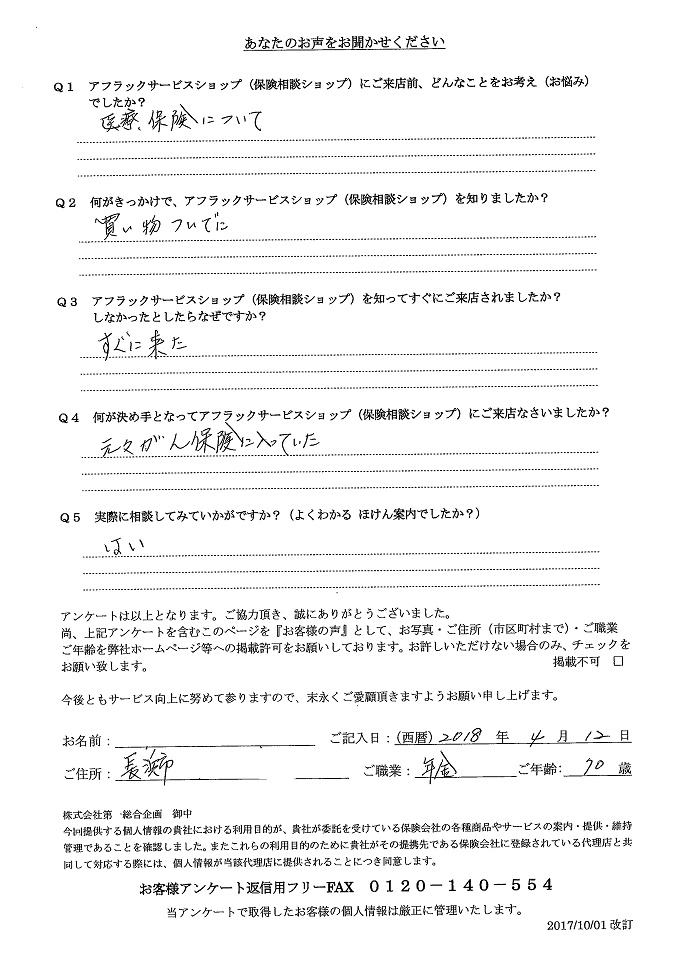 あなたのお声をお聞かせください
Q1 アフラックサービスショップ（保険相談ショップ）にご来店前、どんなことをお考え（お悩み）
でしたか？
医療保険について
Q2 何がきっかけで、アフラックサービスショップ（保険相談ショップ）を知りましたか？
買い物ついでに
Q3 アフラックサービスショップ（保険相談ショップ）を知ってすぐにご来店されましたか？
しなかったとしたらなぜですか？
すぐに来た
Q4 何が決め手となってアフラックサービスショップ（保険相談ショップ）にご来店なさいましたか？
元々がん保険に入っていた
Q5 実際に相談してみていかがですか？（よくわかる ほけん案内でしたか？）
はい
アンケートは以上となります。ご協力頂き、誠にありがとうございました。
尚、上記アンケートを含むこのページを『お客様の声』として、お写真・ご住所（市区町村まで）・ご職業
ご年齢を弊社ホームページ等への掲載許可をお願いしております。お許しいただけない場合のみ、チェックを
お願い致します。 掲載不可 □
今後ともサービス向上に努めて参りますので、末永くご愛顧頂きますようお願い申し上げます。
お名前： ご記入日：（西暦）2018 年 4 月 12 日
ご住所： 長浜市 ご職業： 年金 ご年齢： 70 歳
株式会社第 総合企画 御中
今回提供する個人情報の貴社における利用目的が、貴社が委託を受けている保険会社の各種商品やサービスの案内・提供・維持
管理であることを確認しました。またこれらの利用目的のために貴社がその提携先である保険会社に登録されている代理店と共
同して対応する際には、個人情報が当該代理店に提供されることにつき同意します。
お客様アンケート返信用フリーFAX 0120－140－554
当アンケートで取得したお客様の個人情報は厳正に管理いたします。
2017/10/01 改訂